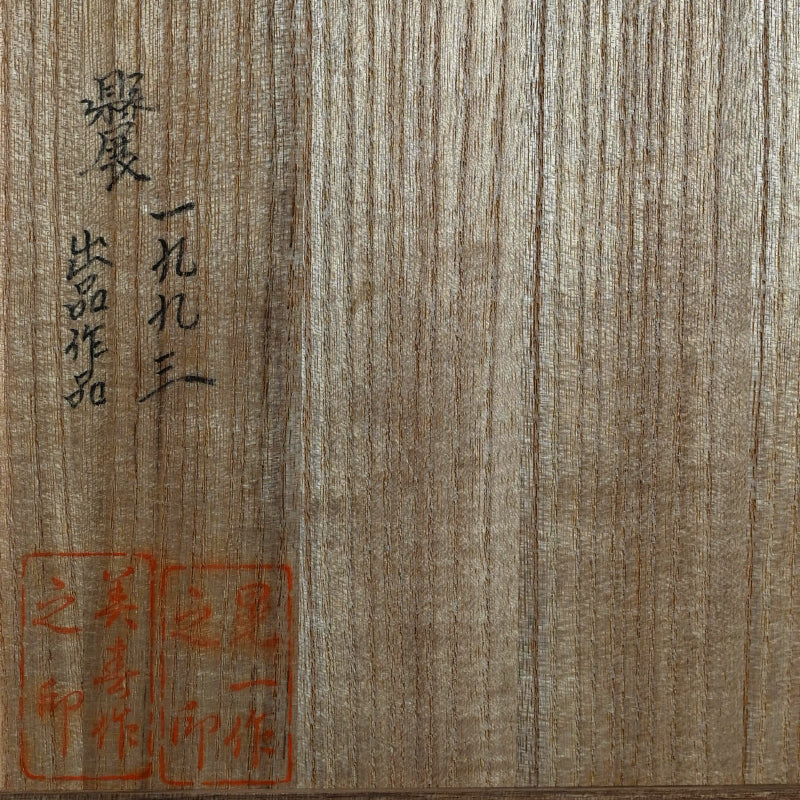 県展
一九九三
出品作品
晃一作
之印
美寿作
之印